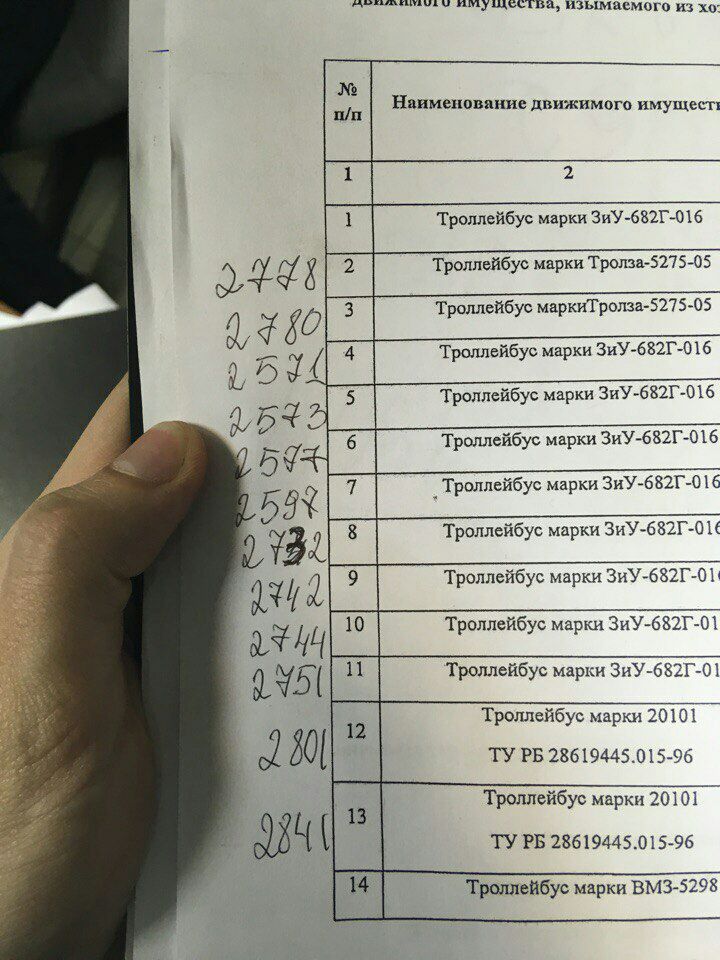 движимого имущества, изымаемого из хоз
№ п/п Наименование движимого имуществ
1 2
1 Троллейбус марки ЗиУ-682Г-016
2778 2 Троллейбус марки Тролза-5275-05
2780 3 Троллейбус маркиТролза-5275-05
2571 4 Троллейбус марки ЗиУ-682Г-016
2573 5 Троллейбус марки ЗиУ-682Г-016
2577 6 Троллейбус марки ЗиУ-682Г-016
2597 7 Троллейбус марки ЗиУ-682Г-016
2732 8 Троллейбус марки ЗиУ-682Г-016
2742 9 Троллейбус марки ЗиУ-682Г-016
2744 10 Троллейбус марки ЗиУ-682Г-01
2751 11 Троллейбус марки ЗиУ-682Г-01
2801 12 Троллейбус марки 20101
ТУ РБ 28619445.015-96
2841 13 Троллейбус марки 20101
ТУ РБ 28619445.015-96
14 Троллейбус марки ВМЗ-5298